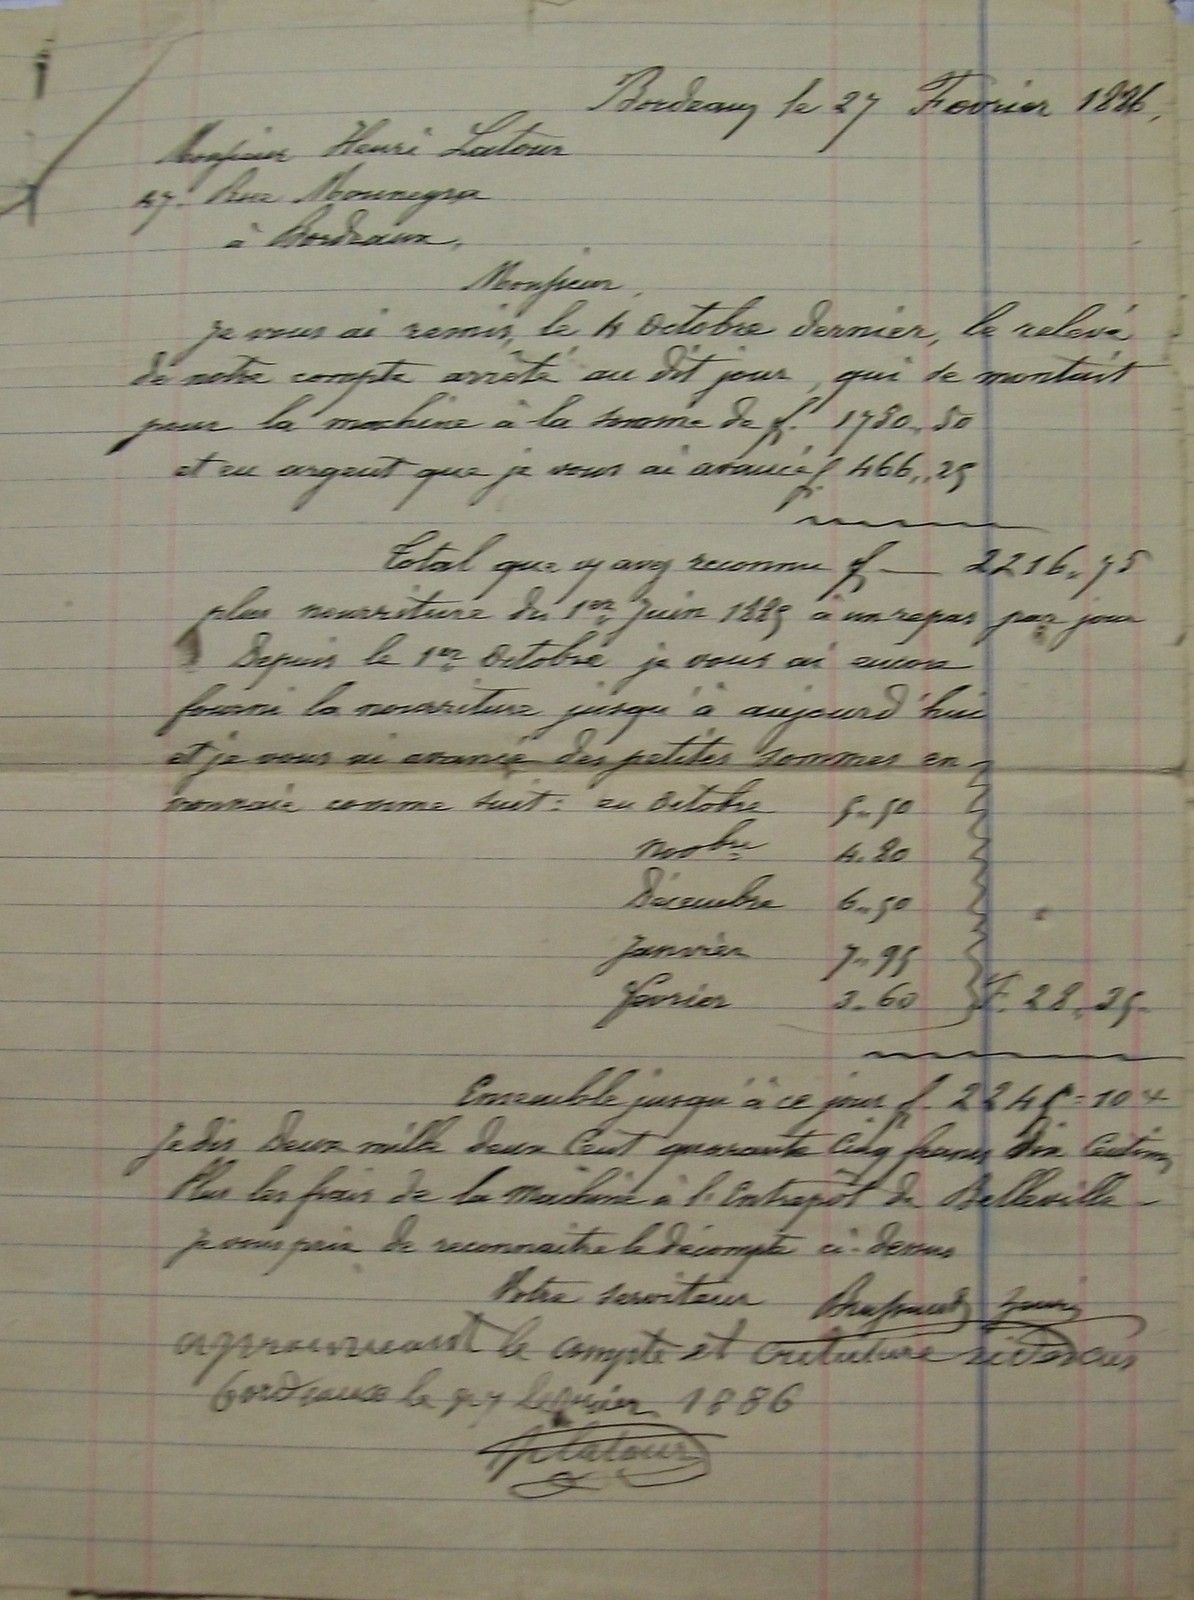 Bordeaux le 27 Fevrier 1886,
Monsieur Henri Latour
27. Rue
à Bordeaux,
Monsieur,
Je vous ai remis, le 4 Octobre dernier, le relevé
de notre compte arrêté au dit jour, qui se montait
pour la machine à la somme de f. 1750,50
et en argent que je vous ai avancé f 466,,25
Total que reconnu f — 2216,75
plus nourriture du 1er Juin 1885 à un repas par jour
Depuis le 1er Octobre je vous ai encore
fourni la nourriture jusqu'à aujourd'hui
et je vous ai avancé des petites sommes en
monnaie comme suit: en Octobre 5,,50
Novbre 4.80
Décembre 6,,50
Janvier 7,,95
fevrier 3,,60 F. 28,35
Ensemble jusqu'à ce jour f. 2245=10
Je dis Deux mille deux Cent quarante Cinq francs dix Centimes
Plus les frais de la Machine à l'Entrepôt de Belleville
Je vous prie de reconnaitre le décompte ci-dessus
Votre serviteur
le compte et
bordeaux le 27 1886
Hlatour